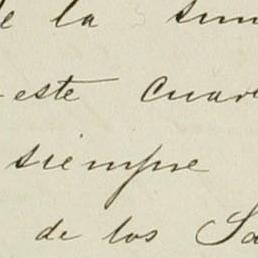 de la sum
este cuar
siempre
de los Sa